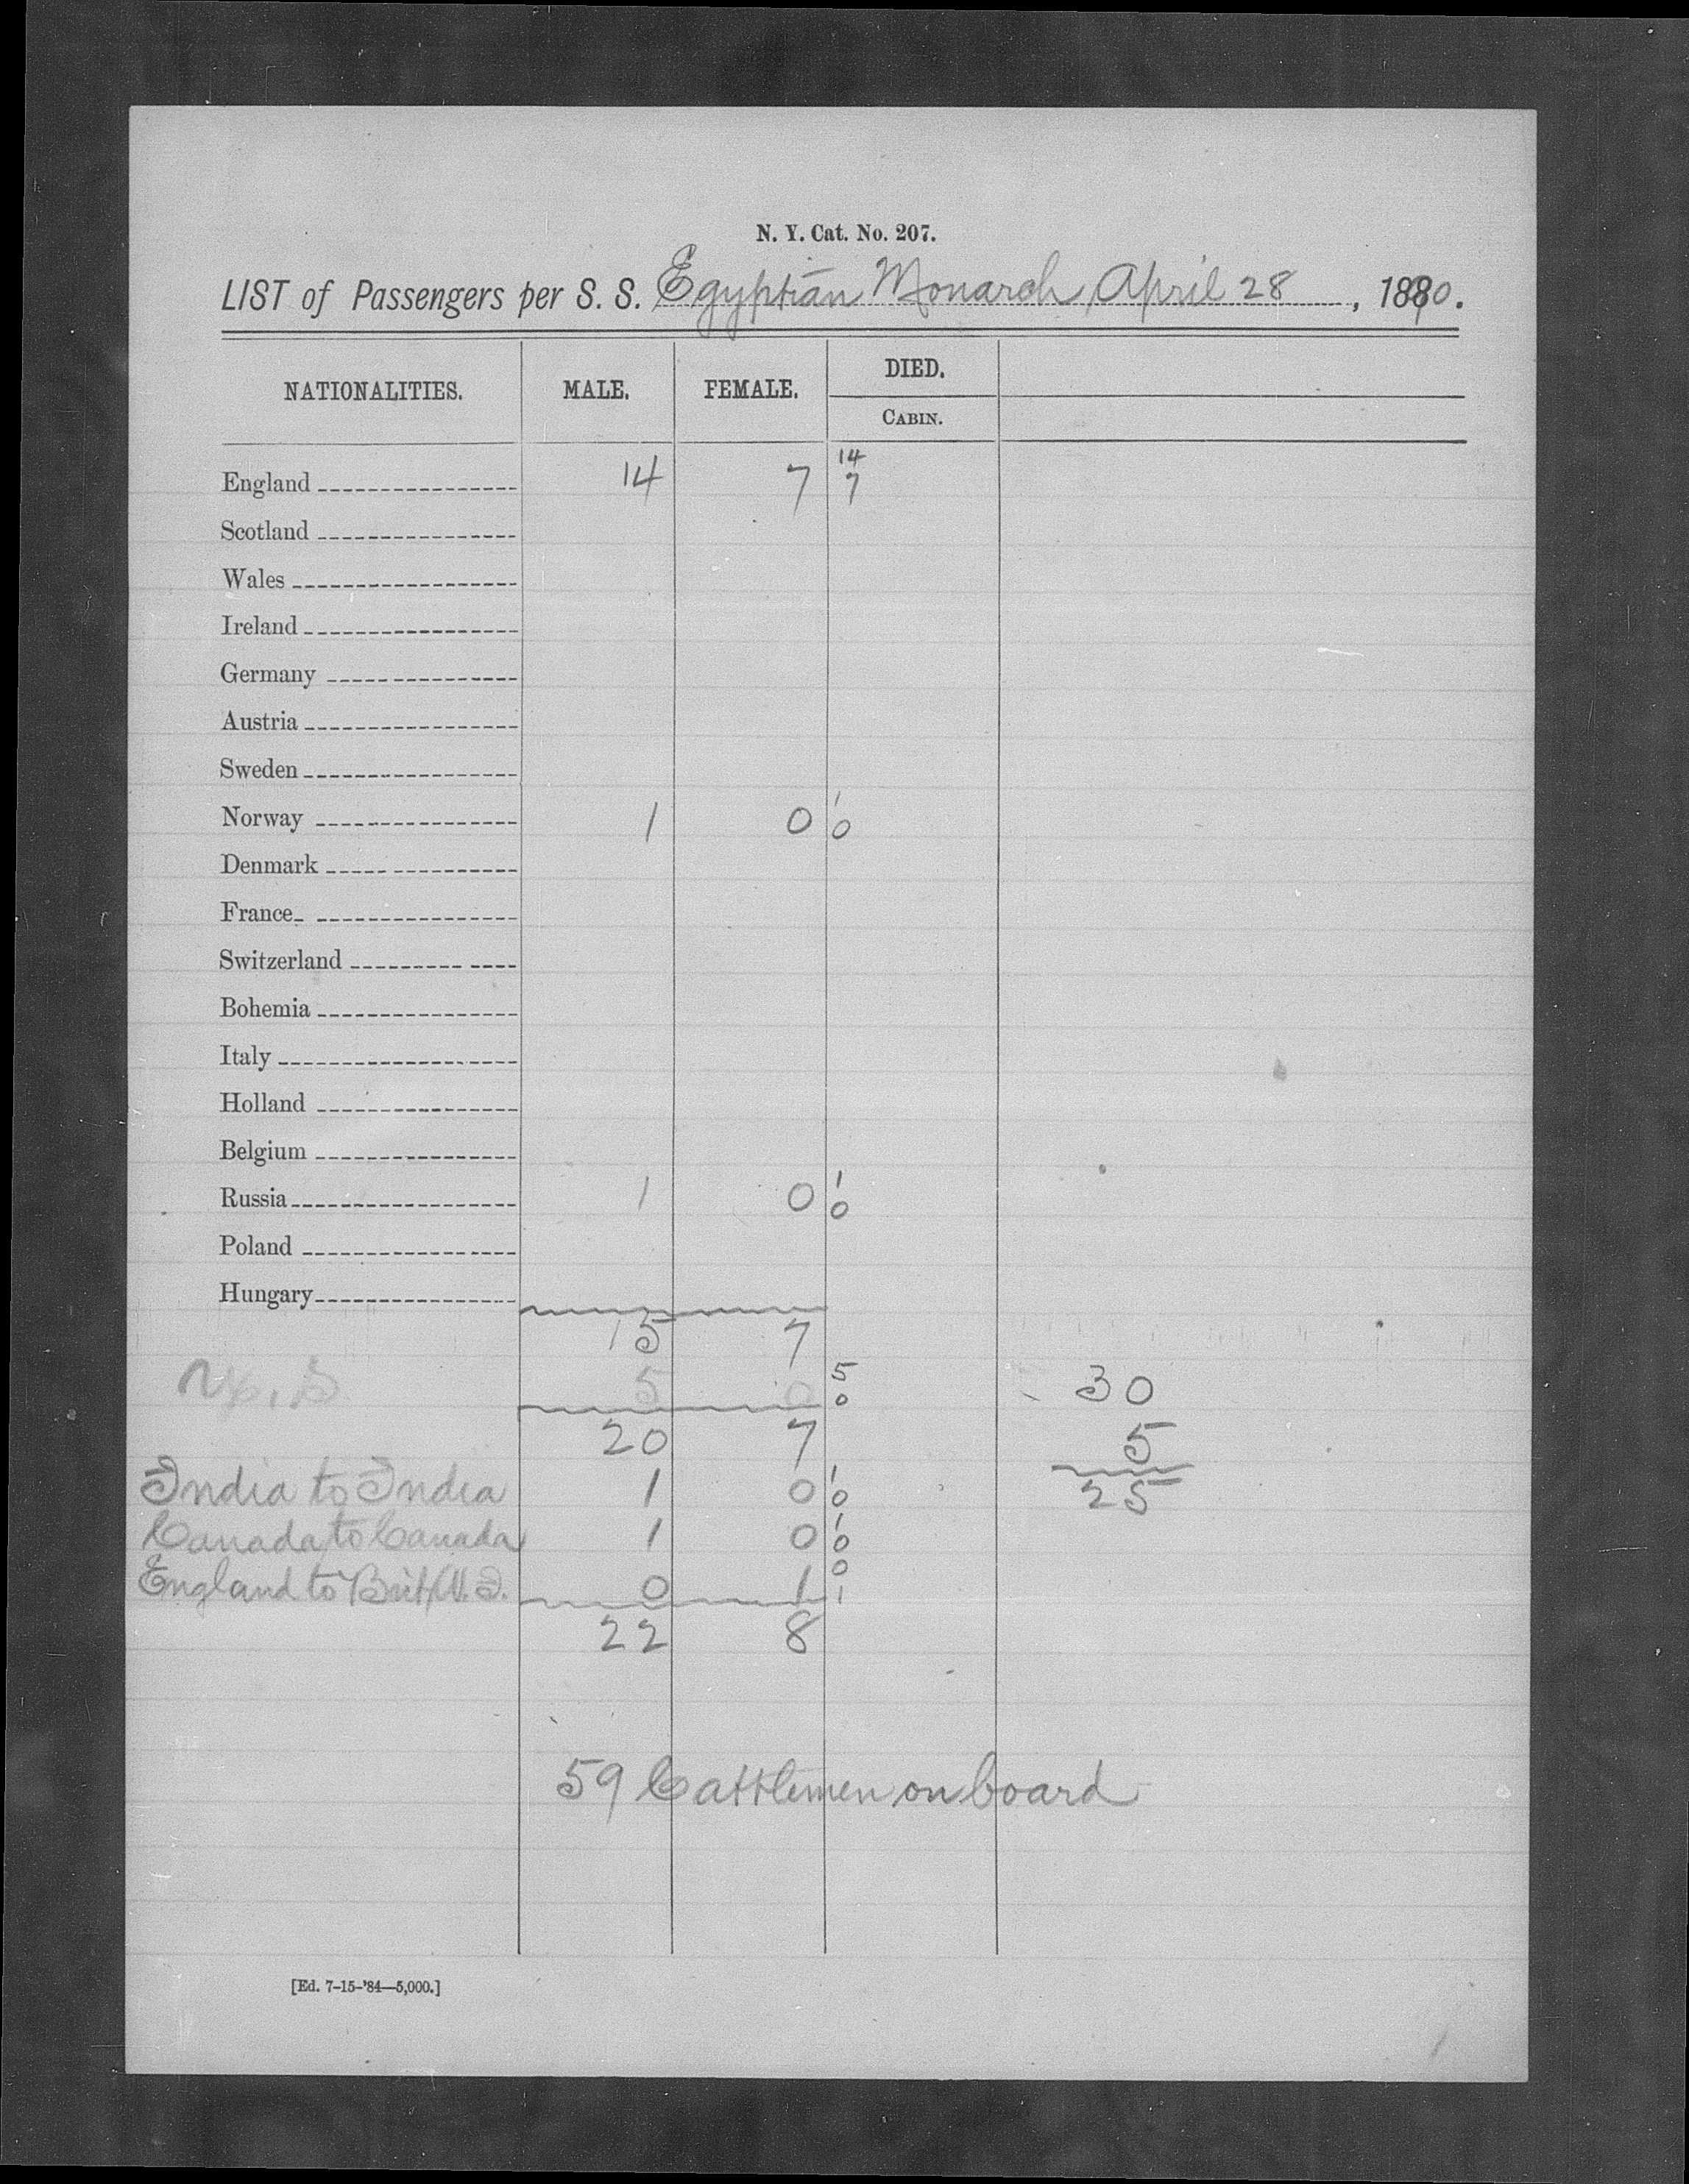 N. Y. Cat. No. 207.
LIST of Passengers per S. S. Egyptian Monarch, April 28, 1890.
NATIONALITIES. MALE. FEMALE. DIED.
CABIN.
14
England 14 7 7
Scotland
Wales
Ireland
Germany
Austria
Sweden
1
Norway 1 0 0
Denmark
France
Switzerland
Bohemia
Italy
Holland
Belgium
1
Russia 1 0 0
Poland
Hungary
15 7
5
U.S 5 0 0 30
20 7 5
1
India to India 1 0 0 25
1
Canada to Canada 1 0 0
0
England to Brit W. I. 0 1 1
22 8
59 Cattlemen on board
[Ed. 7-15-'84—5,000.]